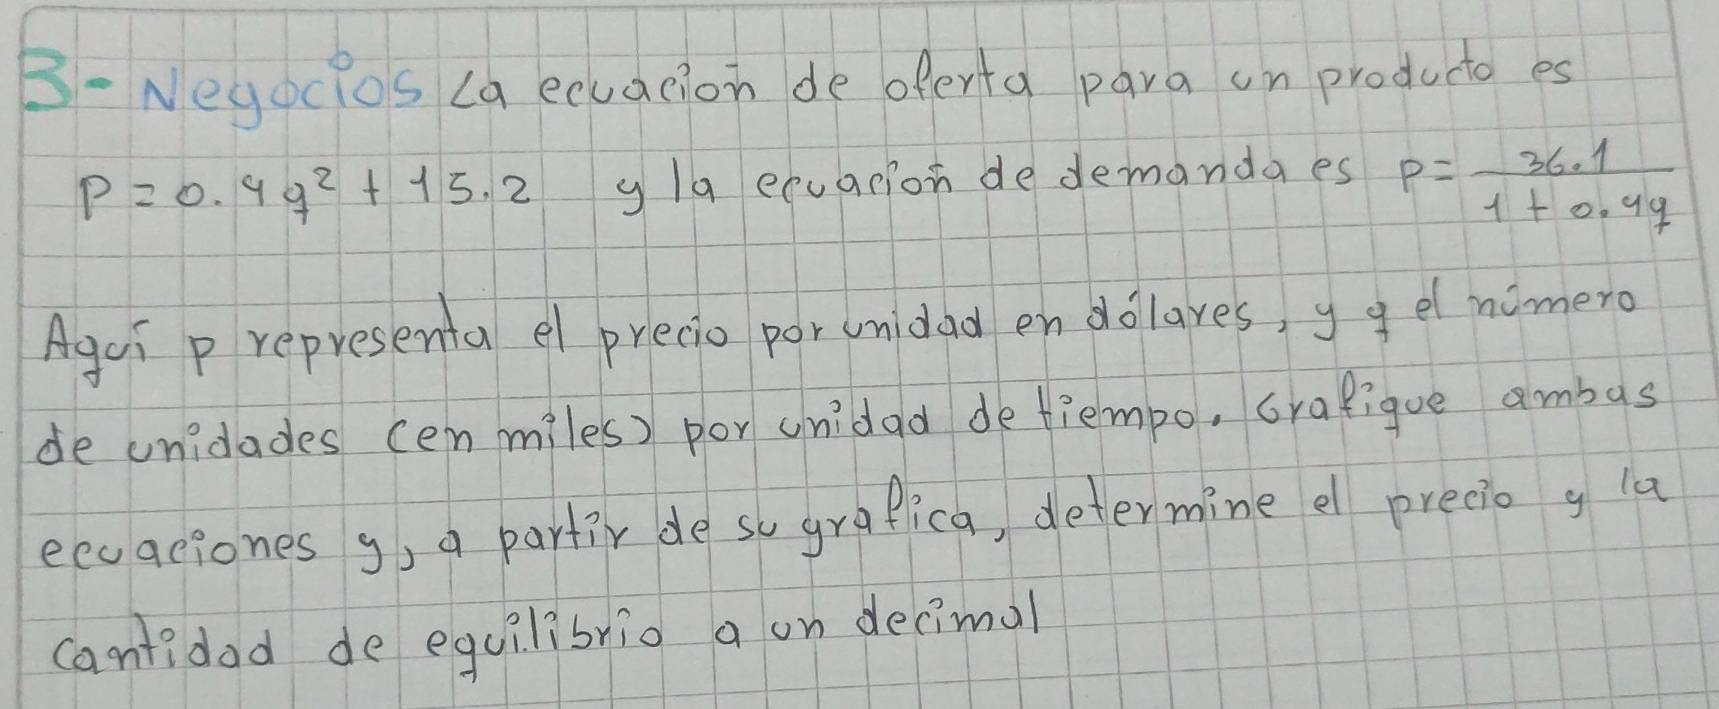 3- Negocios La ecuación de oferta para un producto es
p = 0.4q² + 15.2 y la ecuación de demanda es p = 36.1 / 1 + 0.4q
Aquí p representa el precio por unidad en dólares, y q el número
de unidades (en miles) por unidad de tiempo. Grafique ambas
ecuaciones y, a partir de su grafica, determine el precio y la
cantidad de equilibrio a un decimal